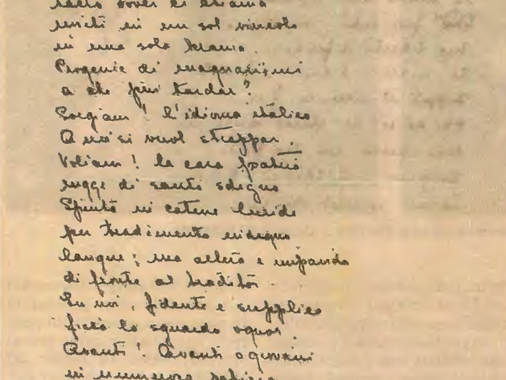 uniti in un sol vincolo
in una sola brama.
Progenie di magnanimi
a che più tardar?
Sorgiam! l'idioma italico
A noi si vuol strappar.
Voliam! la cara patria
rugge di santo sdegno
Spinta in catene
per tradimento indegno
langue; ma allerta e impavida
di fronte al traditor.
In noi, fidente e supplice
ficca lo sguardo ognor.
Avanti! Avanti o giovani
in numerosa